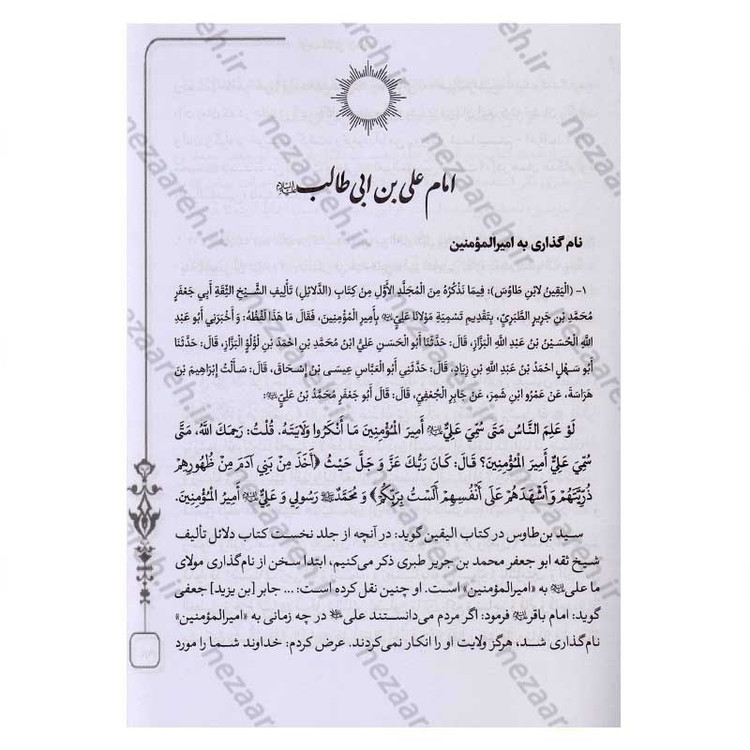 امام علی بن ابی طالب علیه‌السلام
نام گذاری به امیرالمؤمنین
۱- (الْیَقِینُ لابْنِ طَاوُسَ): فِیمَا نَذْکُرُهُ مِنَ الْمُجَلَّدِ الأَوَّلِ مِنْ کِتَابِ (الدَّلَائِلِ) تَألِیفِ الشَّیْخِ الثِّقَةِ أَبِي جَعْفَرٍ
مُحَمَّدِ بْنِ جَرِیرٍ الطَّبَرِيِّ، بِتَقْدِیمِ تَسْمِیَةِ مَوْلَانَا عَلِيٍّ بِأَمِیرِ الْمُؤْمِنِینَ، فَقَالَ مَا هَذَا لَفْظُهُ: وَ أَخْبَرَنِي أَبُو عَبْدِ
اللَّهِ الْحُسَیْنُ بْنُ عَبْدِ اللَّهِ الْبَزَّازُ، قَالَ: حَدَّثَنَا أَبُو الْحَسَنِ عَلِيُّ ابْنُ مُحَمَّدِ بْنِ احْمَدَ بْنِ لُؤْلُؤٍ الْبَزَّازُ، قَالَ: حَدَّثَنَا
أَبُو سَهْلٍ احْمَدُ بْنُ عَبْدِ اللَّهِ بْنِ زِیَادٍ، قَالَ: حَدَّثَنِي أَبُو الْعَبَّاسِ عِیسَی بْنُ إِسْحَاقَ، قَالَ: سَألْتُ إِبْرَاهِیمَ بْنَ
هَرَاسَةَ، عَنْ عَمْرُو ابْنِ شِمْرٍ، عَنْ جَابِرٍ الْجُعْفِيِّ، قَالَ: قَالَ أَبُو جَعْفَرٍ مُحَمَّدُ بْنُ عَلِيٍّ:
لَوْ عَلِمَ النَّاسُ مَتَی سُمِّيَ عَلِيٌّ أَمِیرَ الْمُؤْمِنِینَ مَا أَنْکَرُوا وَلَایَتَهُ. قُلْتُ: رَحِمَكَ اللَّهُ، مَتَی
سُمِّيَ عَلِيٌّ أَمِیرَ الْمُؤْمِنِینَ؟ قَالَ: کَانَ رَبُّكَ عَزَّ وَ جَلَّ حَیْثُ ﴿أَخَذَ مِنْ بَنِي آدَمَ مِنْ ظُهُورِهِمْ
ذُرِّیَّتَهُمْ وَ أَشْهَدَهُمْ عَلَی أَنْفُسِهِمْ أَلَسْتُ بِرَبِّکُمْ﴾ وَ مُحَمَّدٌ رَسُولِي وَ عَلِيٌّ أَمِیرُ الْمُؤْمِنِینَ.
سید بن‌طاوس در کتاب الیقین گوید: در آنچه از جلد نخست کتاب دلائل تألیف
شیخ ثقه ابو جعفر محمد بن جریر طبری ذکر می‌کنیم، ابتدا سخن از نام‌گذاری مولای
ما علی به «امیرالمؤمنین» است. او چنین نقل کرده است: ... جابر [بن یزید] جعفی
گوید: امام باقر فرمود: اگر مردم می‌دانستند علی در چه زمانی به «امیرالمؤمنین»
نام‌گذاری شد، هرگز ولایت او را انکار نمی‌کردند. عرض کردم: خداوند شما را مورد
nezaareh.ir